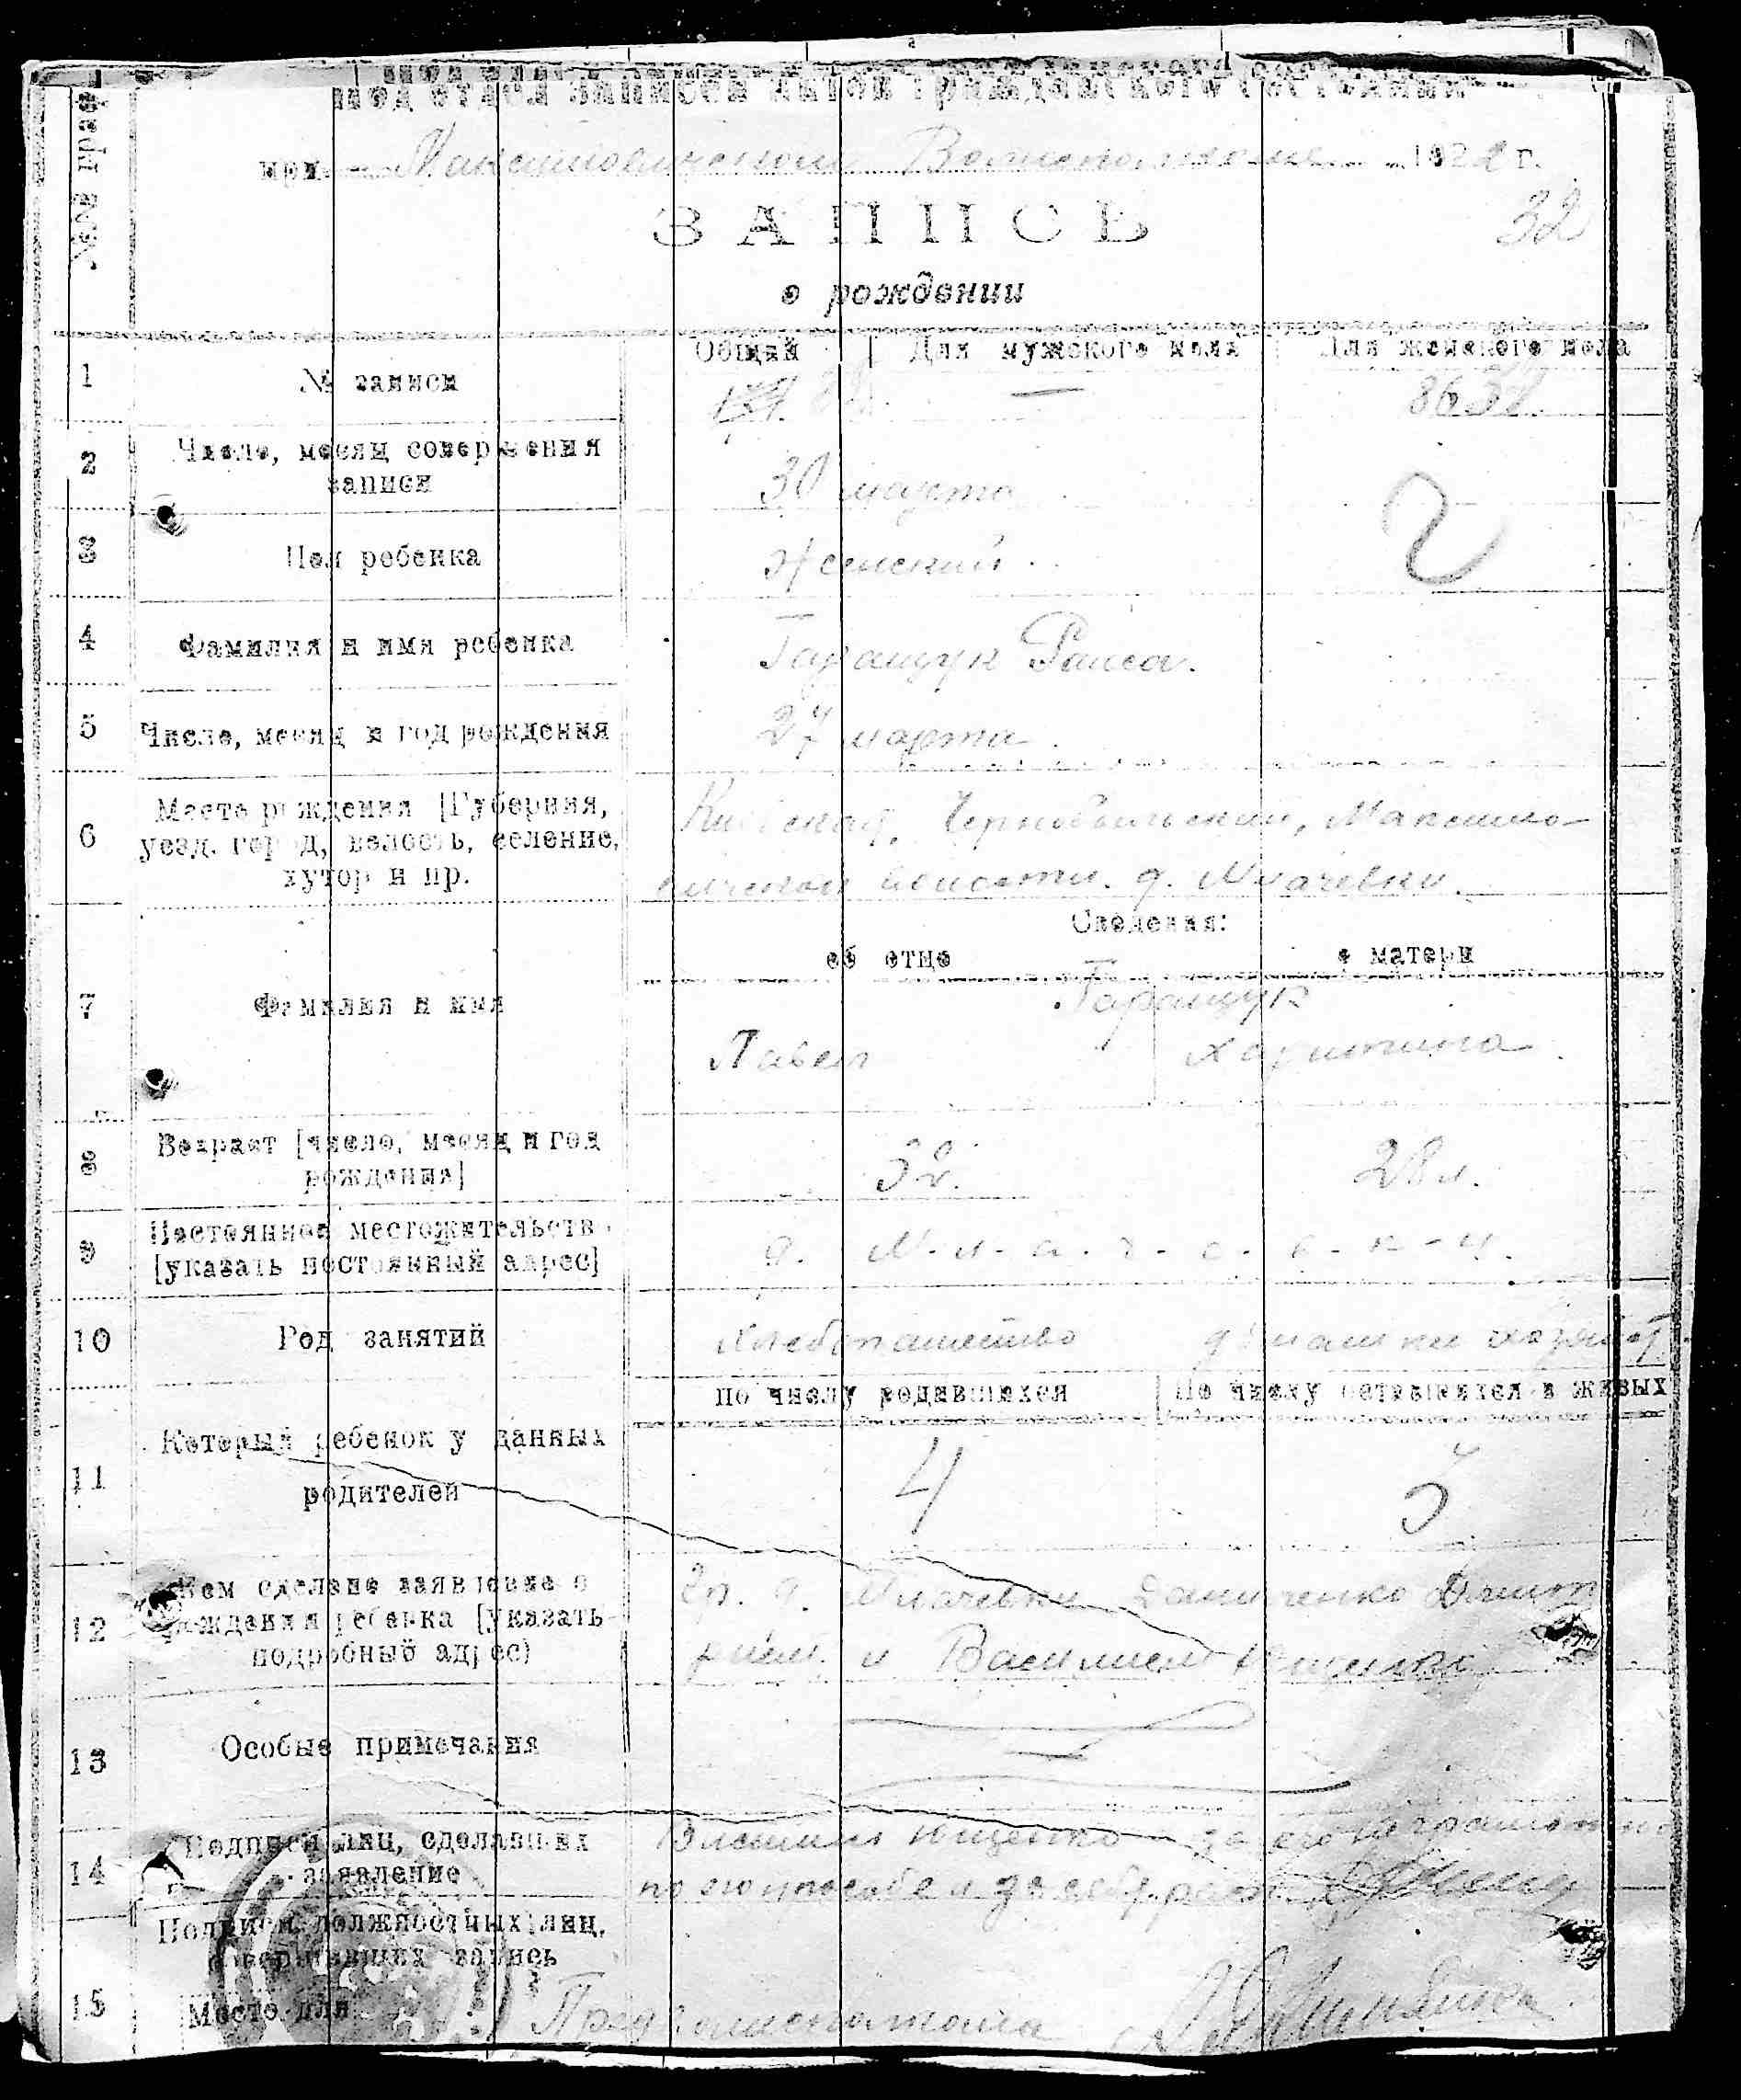 №№ граф
Под'отдел записей актов гражданского состояния
при Максимовическом Волисполкоме 1922 г.
32
ЗАПИСЬ
о рождении
Общий Для мужского пола Для женского пола
1 № записи — 86
2 Число, месяц совершения
записи
30 марта
3 Пол ребенка Женский
4 Фамилия и имя ребенка Гаращук Раиса.
5 Число, месяц и год рождения 27 марта
6 Место рождения [Губерния,
уезд, город, волость, селение,
хутор и пр.
Киевская, Чернобыльский, Максимо-
вической волости. д. Млачевки.
Сведения:
об отце о матери
7 Фамилия и имя Гаращук
Павел Харитина
8 Возраст [число, месяц и год
рождения]
32. 28 л.
9 Постоянное местожительство
[указать постоянный адрес]
д. М-л-а-ч-е-в-к-и.
10 Род занятий Хлебопашество домашнее хозяйст
по числу родившихся По числу оставшихся в живых
11 Который ребенок у данных
родителей
4 3
12 Кем сделано заявление о
рождении ребенка [указать
подробный адрес)
Гр. д. Млачевки Данильченко Дмит
рием и Василием Ющенко
13 Особые примечания
14 Подписи лиц, сделавших
заявление
Василий Ющенко за его неграмотно
по его просьбе и за себя
Подписи должностных лиц,
совершивших запись
15 Место для
Пред Волисполкома